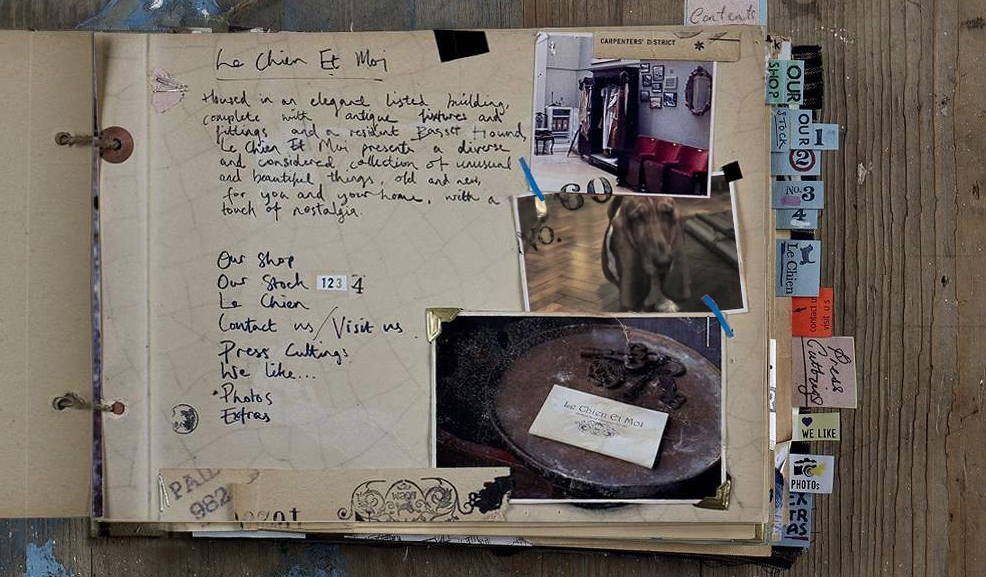 Contents
Le Chien Et Moi
Housed in an elegant listed building,
complete with antique fixtures and
fittings and a resident Basset Hound,
Le Chien Et Moi presents a diverse
and considered collection of unusual
and beautiful things, old and new,
for you and your home, with a
touch of nostalgia.
Our Shop
Our Stock 123 4
Le Chien
Contact us/Visit us
Press Cuttings
We like...
Photos
Extras
CARPENTERS' DISTRICT
60
No.
Le Chien Et Moi
PAID
982
OUR SHOP
OUR STOCK 1
2
No. 3
4
Le Chien
contact us visit us
Press Cuttings
WE LIKE
PHOTOS
EXTRAS